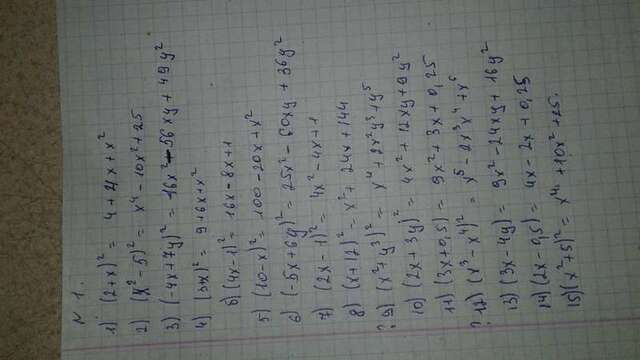 N 1.
1) (2+x)² = 4+4x+x²
2) (x²-5)² = x⁴-10x²+25
3) (-4x+7y)² = 16x²-56xy+49y²
4) (3+x)² = 9+6x+x²
б) (4x-1)² = 16x-8x+1
5) (10-x)² = 100-20x+x²
6) (-5x+6y)² = 25x²-60xy+36y²
7) (2x-1)² = 4x²-4x+1
8) (x+12)² = x²+24x+144
? 9) (x²+y³)² = x⁴+2x²y³+y⁵
10) (2x+3y)² = 4x²+12xy+9y²
11) (3x+0,5) = 9x²+3x+0,25
? 12) (x³-x⁴)² = x⁵-2x³x⁴+x⁶
13) (3x-4y) = 9x²-24xy+16y²
14) (2x-0,5) = 4x-2x+0,25
15) (x²+5)² = x⁴+10x²+25.